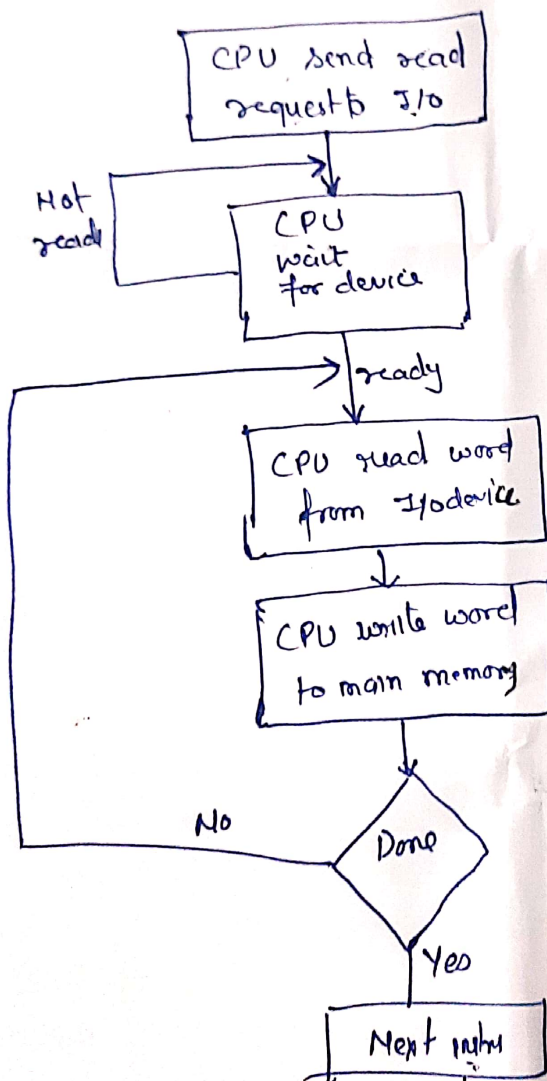 CPU send read
request to I/O
Not
ready
CPU
wait
for device
ready
CPU read word
from I/O device
CPU write word
to main memory
No
Done
Yes
Next